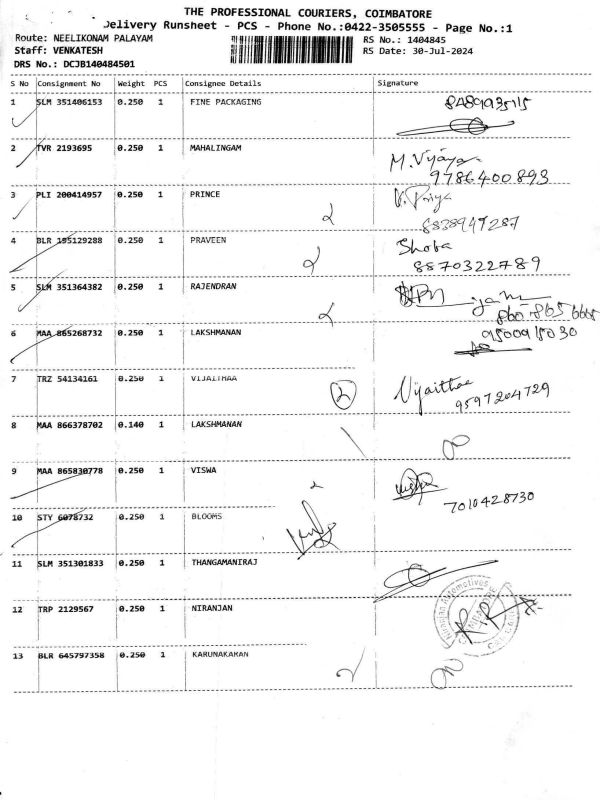 THE PROFESSIONAL COURIERS, COIMBATORE
Delivery Runsheet - PCS - Phone No.:0422-3505555 - Page No.:1
Route: NEELIKONAM PALAYAM RS No.: 1404845
Staff: VENKATESH RS Date: 30-Jul-2024
DRS No.: DCJB140484501
S No Consignment No Weight PCS Consignee Details Signature
1 SLM 351406153 0.250 1 FINE PACKAGING
2 TVR 2193695 0.250 1 MAHALINGAM M. Vijaya
9786400893
3 PLI 200414957 0.250 1 PRINCE V. Priya
2 8838947287
4 BLR 195129288 0.250 1 PRAVEEN Shoba
2 8870322789
5 SLM 351364382 0.250 1 RAJENDRAN
2
6 MAA 865268732 0.250 1 LAKSHMANAN
7 TRZ 54134161 0.250 1 VIJAITHAA 2 Vijaithaa
9597204729
8 MAA 866378702 0.140 1 LAKSHMANAN
9 MAA 865830778 0.250 1 VISWA 2
7010428730
10 STY 6078732 0.250 1 BLOOMS
11 SLM 351301833 0.250 1 THANGAMANIRAJ
12 TRP 2129567 0.250 1 NIRANJAN Niranjan Automotives
COIMBATORE
13 BLR 645797358 0.250 1 KARUNAKARAN 2